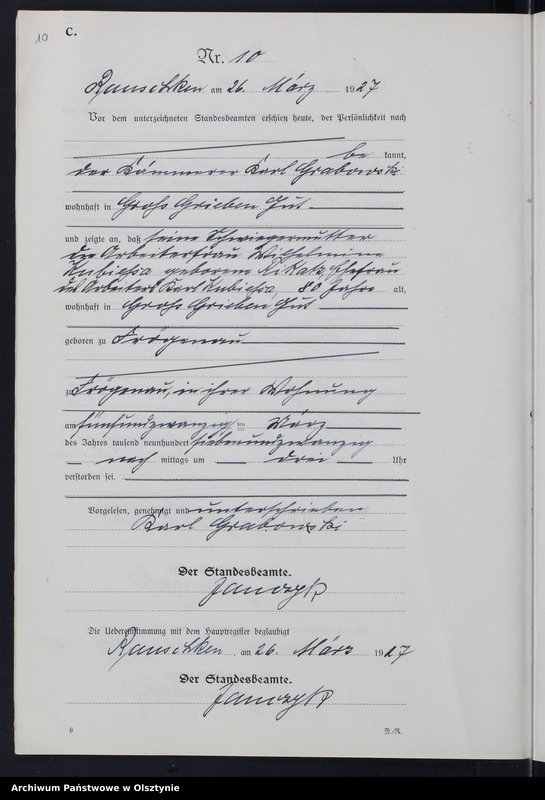 10
C.
Nr. 10
Rauschken am 26. März 1927
Vor dem unterzeichneten Standesbeamten erschien heute, der Persönlichkeit nach
be kannt,
der Kämmerer Karl Grabowski
wohnhaft in Groß Grieben Gut
und zeigte an, daß seine Schwiegermutter
die Arbeiterfrau Wilhelmine
geborene Ehefrau
des Arbeiters Karl 80 Jahre alt,
wohnhaft in Groß Grieben Gut
geboren zu Frögenau
zu Frögenau, in ihrer Wohnung
am fünfundzwanzigsten März
des Jahres tausend neunhundert siebenundzwanzig
nach mittags um drei Uhr
verstorben sei.
Vorgelesen, genehmigt und unterschrieben
Karl Grabowski
Der Standesbeamte.
Die Uebereinstimmung mit dem Hauptregister beglaubigt
Rauschken, am 26. März 1927
Der Standesbeamte.
6 N.-R.
Archiwum Państwowe w Olsztynie